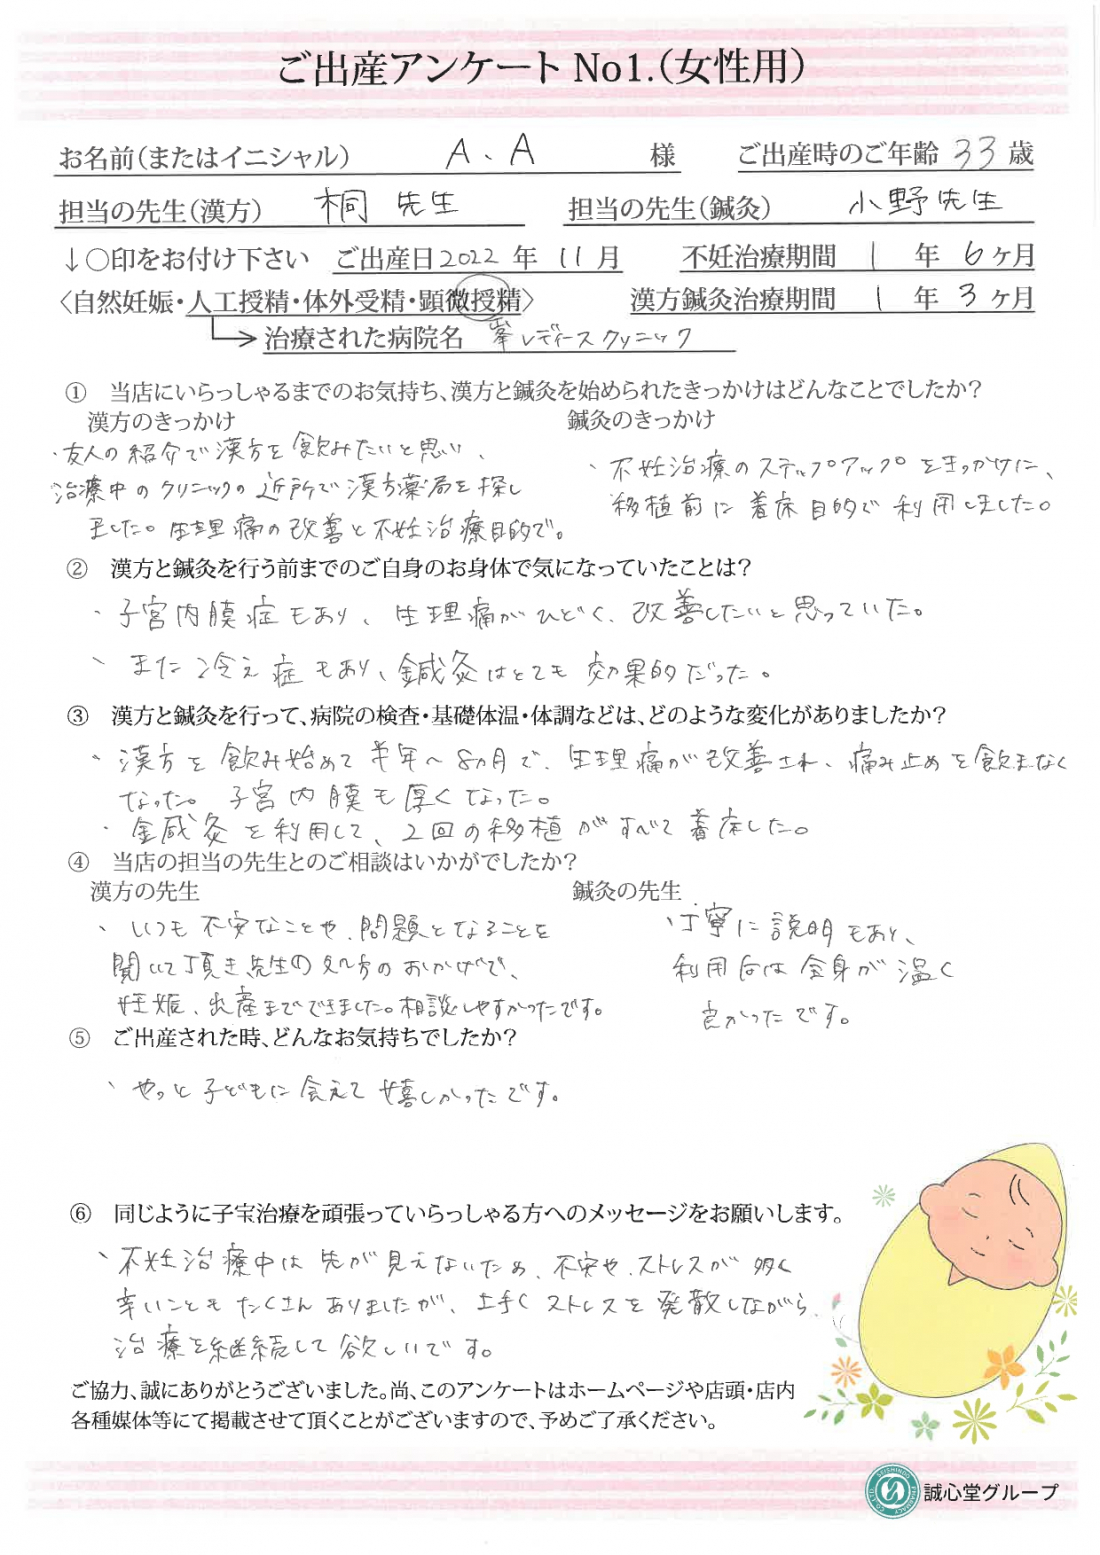 ご出産アンケート No1.(女性用)
お名前(またはイニシャル) A、A 様 ご出産時のご年齢 33 歳
担当の先生(漢方) 桐 先生 担当の先生(鍼灸) 小野先生
↓○印をお付け下さい ご出産日2022 年 11 月 不妊治療期間 1 年 6 ヶ月
〈自然妊娠・人工授精・体外受精・顕微授精〉 漢方鍼灸治療期間 1 年 3 ヶ月
治療された病院名 峯レディースクリニック
① 当店にいらっしゃるまでのお気持ち、漢方と鍼灸を始められたきっかけはどんなことでしたか?
漢方のきっかけ
・友人の紹介で漢方を飲みたいと思い、
治療中のクリニックの近所で漢方薬局を探し
ました。生理痛の改善と不妊治療目的で。
鍼灸のきっかけ
、不妊治療のステップアップをきっかけに、
移植前に着床目的で利用しました。
② 漢方と鍼灸を行う前までのご自身のお身体で気になっていたことは?
・子宮内膜症もあり、生理痛がひどく、改善したいと思っていた。
、また冷え症もあり、鍼灸はとても効果的だった。
③ 漢方と鍼灸を行って、病院の検査・基礎体温・体調などは、どのような変化がありましたか?
、漢方を飲み始めて半年〜8ヵ月で、生理痛が改善され、痛み止めを飲まなく
なった。子宮内膜も厚くなった。
・鍼灸を利用して、2回の移植がすべて着床した。
④ 当店の担当の先生とのご相談はいかがでしたか?
漢方の先生
、いつも不安なことや、問題となることを
聞いて頂き先生の処方のおかげで、
妊娠、出産までできました。相談しやすかったです。
鍼灸の先生
、丁寧に説明もあり、
利用後は全身が温く
良かったです。
⑤ ご出産された時、どんなお気持ちでしたか?
、やっと子どもに会えて嬉しかったです。
⑥ 同じように子宝治療を頑張っていらっしゃる方へのメッセージをお願いします。
、不妊治療中は先が見えないため、不安や、ストレスが多く
辛いこともたくさんありましたが、上手くストレスを発散しながら、
治療を継続して欲しいです。
ご協力、誠にありがとうございました。尚、このアンケートはホームページや店頭・店内
各種媒体等にて掲載させて頂くことがございますので、予めご了承ください。
誠心堂グループ